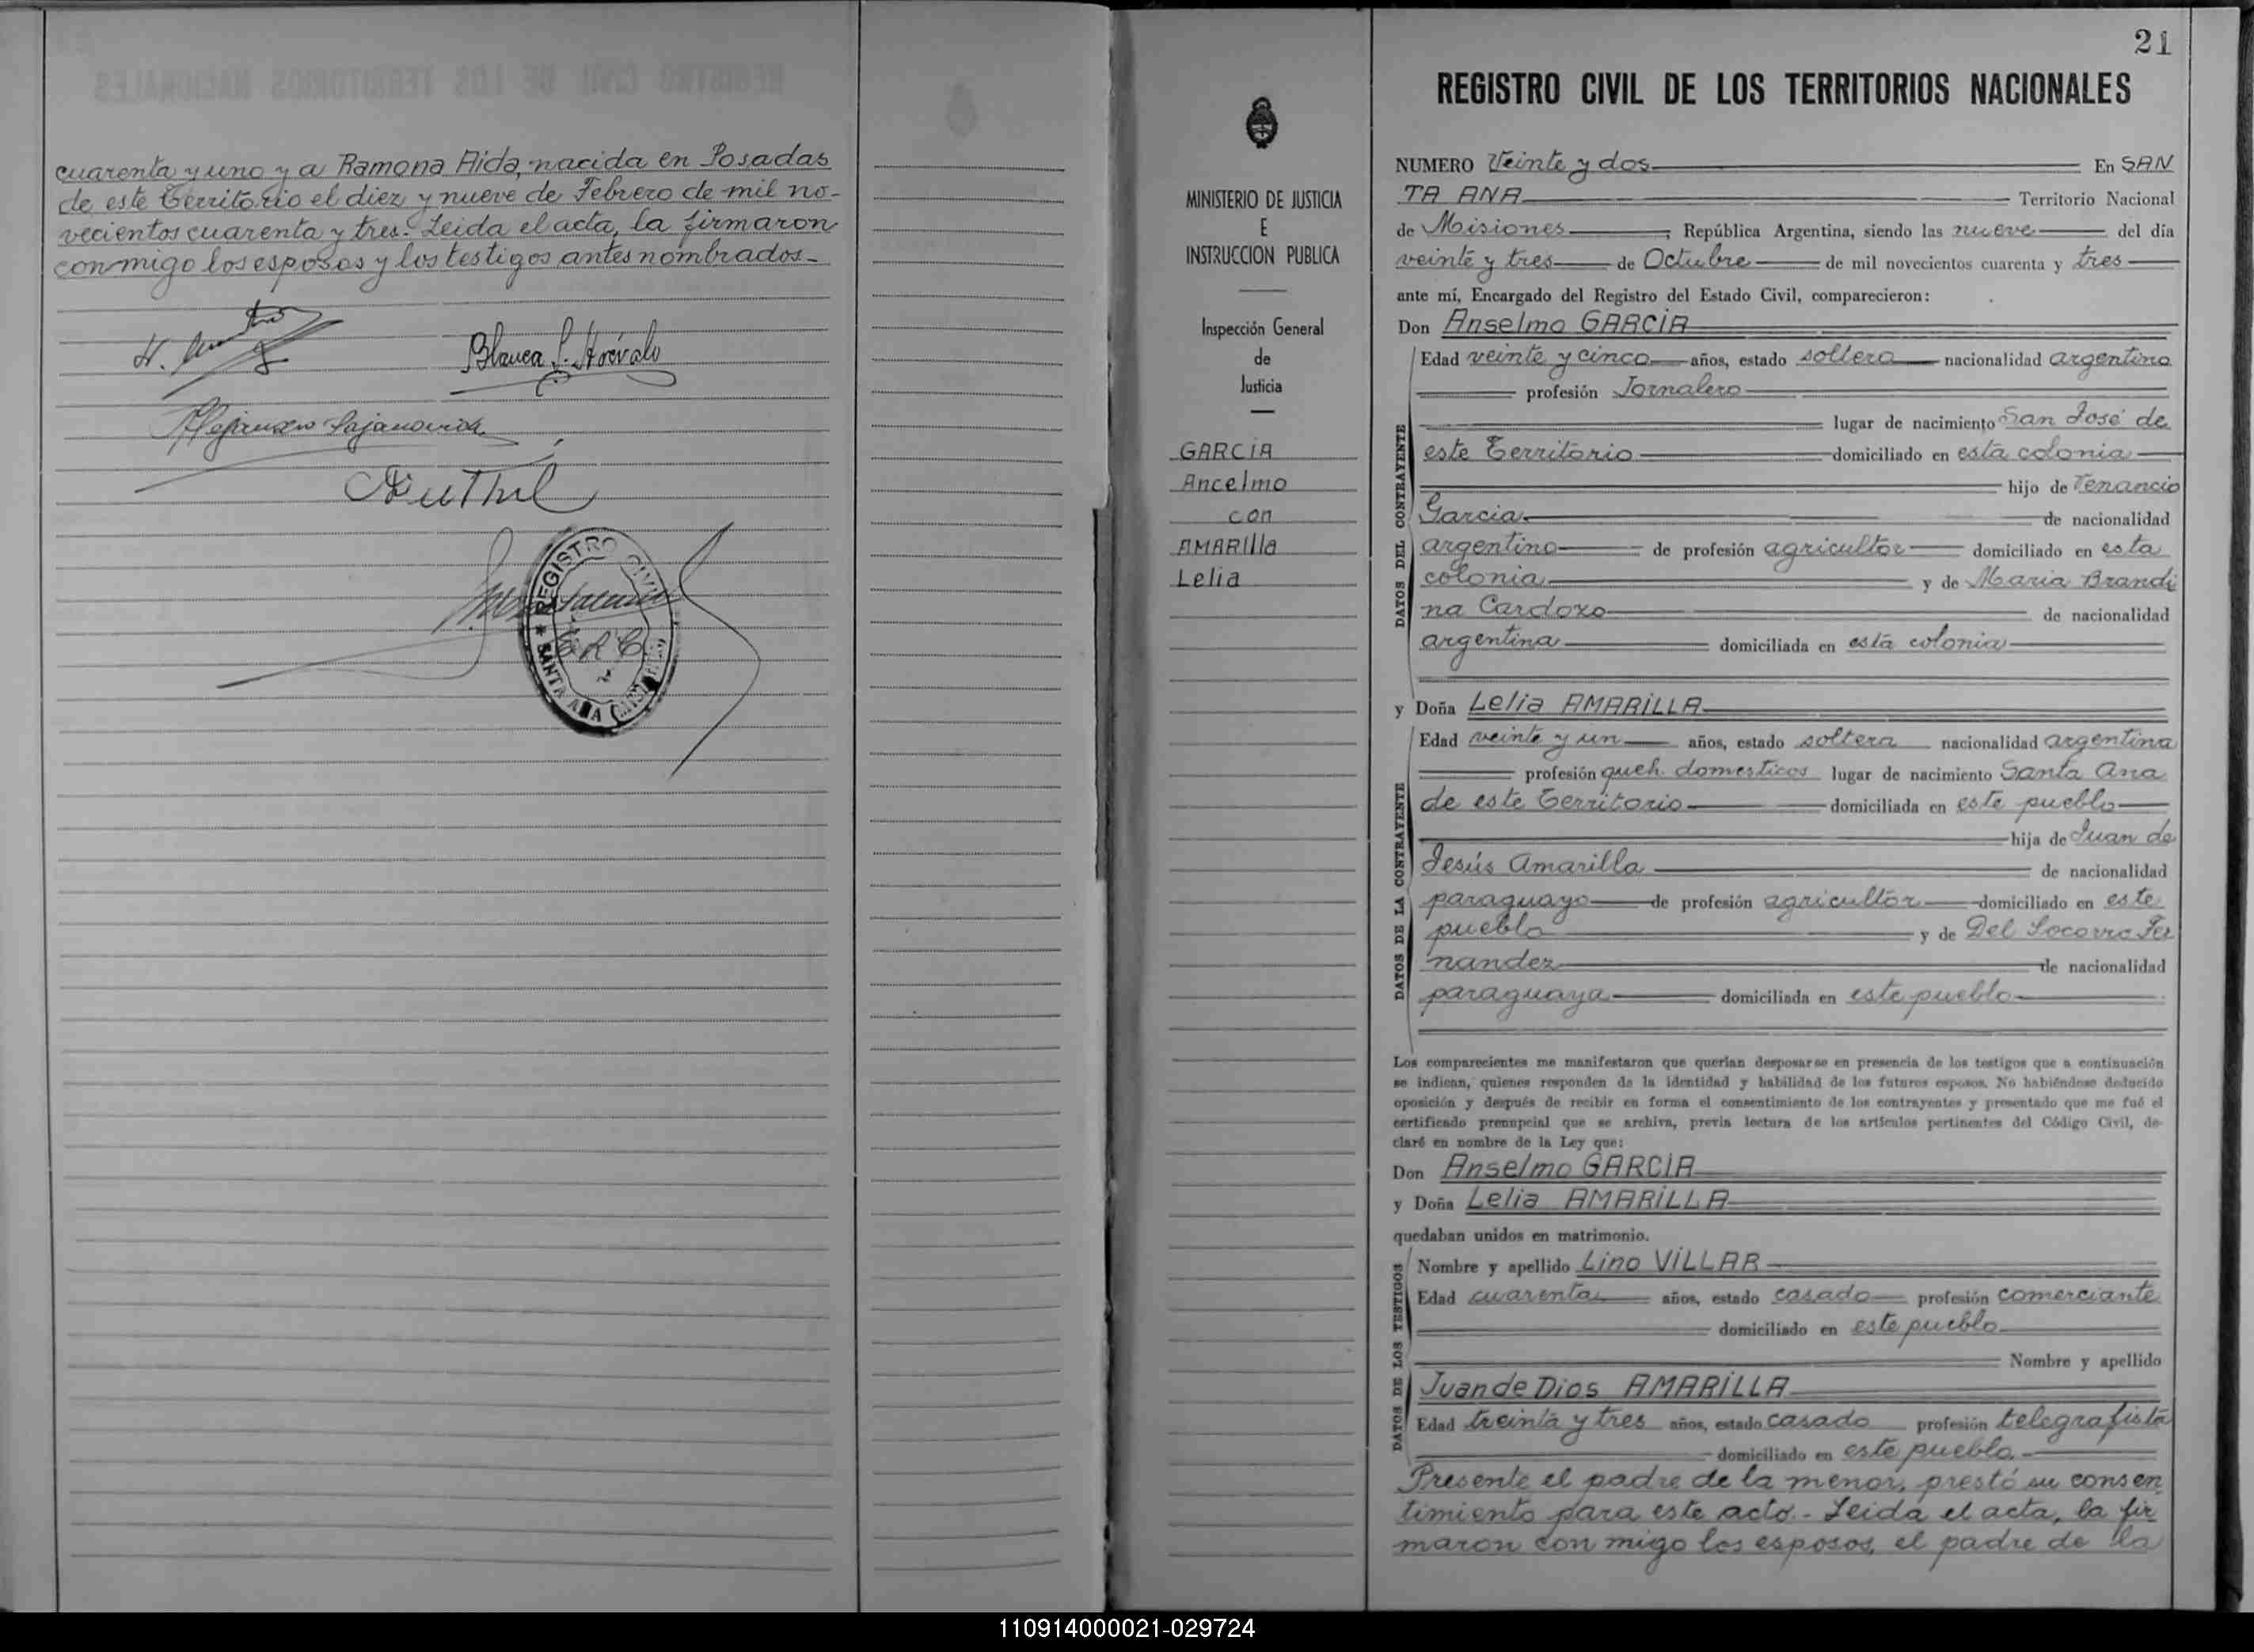 cuarenta y uno y a Ramona Aida, nacida en Posadas
de este Territorio el diez y nueve de Febrero de mil no-
vecientos cuarenta y tres.- Leida el acta, la firmaron
conmigo los esposos y los testigos antes nombrados.-
Blanca
Alejandro
REGISTRO CIVIL
SANTA ANA (MISIONES)
MINISTERIO DE JUSTICIA
E
INSTRUCCION PUBLICA
Inspección General
de
Justicia
GARCIA
Ancelmo
con
AMARilla
Lelia
21
REGISTRO CIVIL DE LOS TERRITORIOS NACIONALES
NUMERO Veinte y dos En SAN
TA ANA Territorio Nacional
de Misiones, República Argentina, siendo las nueve del día
veinte y tres de Octubre de mil novecientos cuarenta y tres
ante mí, Encargado del Registro del Estado Civil, comparecieron:
Don Anselmo GARCIA
DATOS DEL CONTRAYENTE
Edad veinte y cinco años, estado soltero nacionalidad argentino
profesión Jornalero
lugar de nacimiento San José de
este Territorio domiciliado en esta colonia
hijo de Venancio
Garcia de nacionalidad
argentino de profesión agricultor domiciliado en esta
colonia y de Maria Brandi
na Cardozo de nacionalidad
argentina domiciliada en esta colonia
y Doña Lelia AMARILLA
DATOS DE LA CONTRAYENTE
Edad veinte y un años, estado soltera nacionalidad argentina
profesión queh. domesticos lugar de nacimiento Santa Ana
de este Territorio domiciliada en este pueblo
hija de Juan de
Jesús Amarilla de nacionalidad
paraguayo de profesión agricultor domiciliado en este
pueblo y de Del Socorro Fer
nandez de nacionalidad
paraguaya domiciliada en este pueblo
Los comparecientes me manifestaron que querían desposarse en presencia de los testigos que a continuación
se indican, quienes responden de la identidad y habilidad de los futuros esposos. No habiéndose deducido
oposición y después de recibir en forma el consentimiento de los contrayentes y presentado que me fué el
certificado prenupcial que se archiva, previa lectura de los artículos pertinentes del Código Civil, de-
claré en nombre de la Ley que:
Don Anselmo GARCIA
y Doña Lelia AMARILLA
quedaban unidos en matrimonio.
DATOS DE LOS TESTIGOS
Nombre y apellido Lino VILLAR
Edad cuarenta años, estado casado profesión comerciante
domiciliado en este pueblo
Nombre y apellido
Juan de Dios AMARILLA
Edad treinta y tres años, estado casado profesión telegrafista
domiciliado en este pueblo.-
Presente el padre de la menor, prestó su consen
timiento para este acto.- Leida el acta, la fir
maron con migo los esposos, el padre de la
110914000021-029724